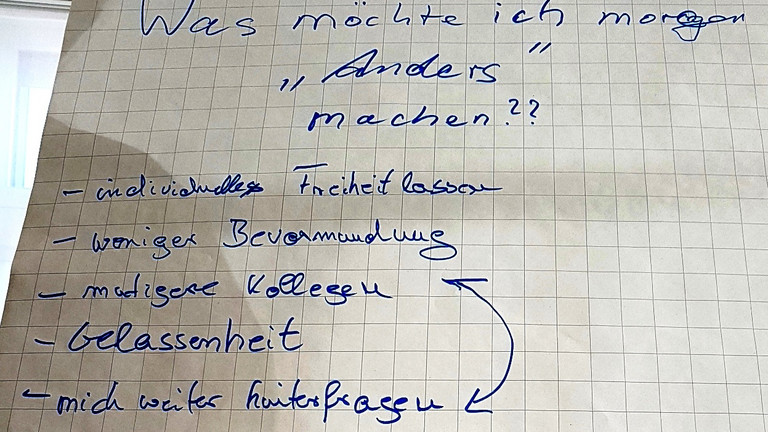 Was möchte ich morgen
„Anders"
machen??
- individuelles Freiheit lassen
- weniger Bevormundung
- mutigere Kollegen
- Gelassenheit
- mich weiter hinterfragen